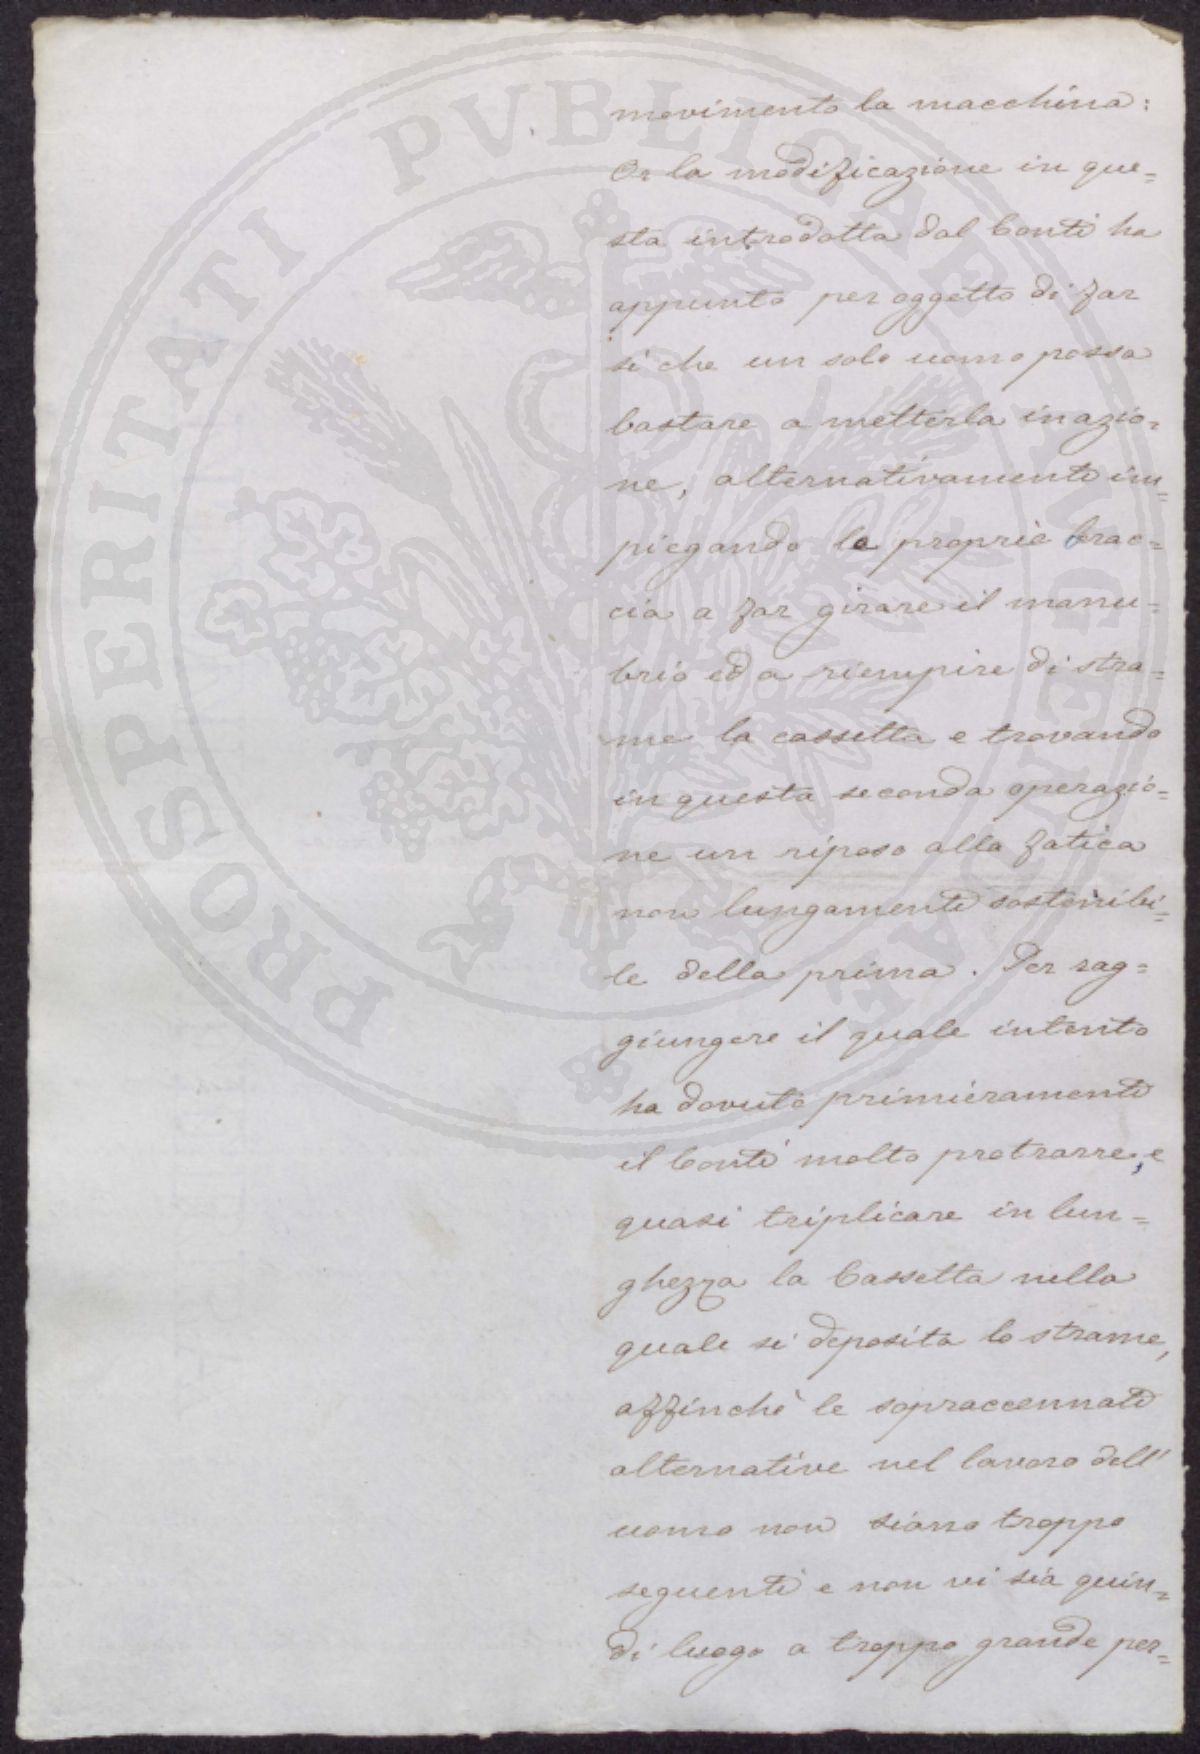 movimento la macchina:
Or la modificazione in que=
sta introdotta dal Conti ha
appunto per oggetto di far
sì che un solo uomo possa
bastare a metterla in azio=
ne, alternativamente im=
piegando le proprie brac=
cia a far girare il manu=
brio ed a riempire di stra=
me la cassetta e trovando
in questa seconda operazio=
ne un riposo alla fatica
non lungamente sostenibi=
le della prima. Per rag=
giungere il quale intento
ha dovuto primieramente
il Conti molto protrarre, e
quasi triplicare in lun=
ghezza la Cassetta nella
quale si deposita lo strame,
affinchè le sopraccennate
alternative nel lavoro dell'
uomo non siano troppo
seguenti e non vi sia quin=
di luogo a troppo grande per=
PROSPERITATI PVBLICAE AVGENDAE